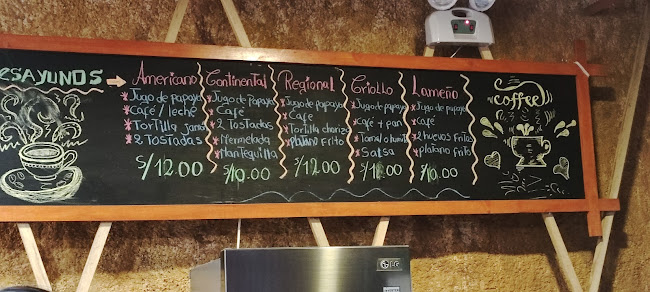 ESAYUNOS
Americano
Jugo de papaya
Café / leche
Tortilla jamón
2 Tostadas
S/12.00
Continental
Jugo de papaya
Café
2 Tostadas
Mermelada
Mantequilla
S/10.00
Regional
Jugo de papaya
Cafe
Tortilla chorizo
platano frito
S/12.00
Criollo
Jugo de papaya
Café + pan
Salsa
S/10.00
Lameño
Jugo de papaya
Cafe
2 huevos fritos
platano frito
S/10.00
coffee
LG